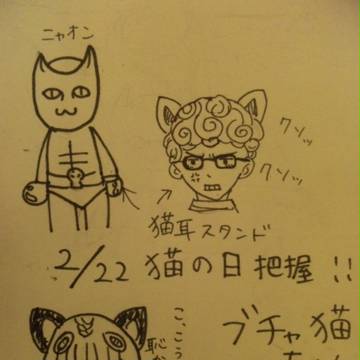 ニャオン
クソッ
クソッ
猫耳スタンド
2/22 猫の日把握!!
ブチャ猫
こ、こう
恥か